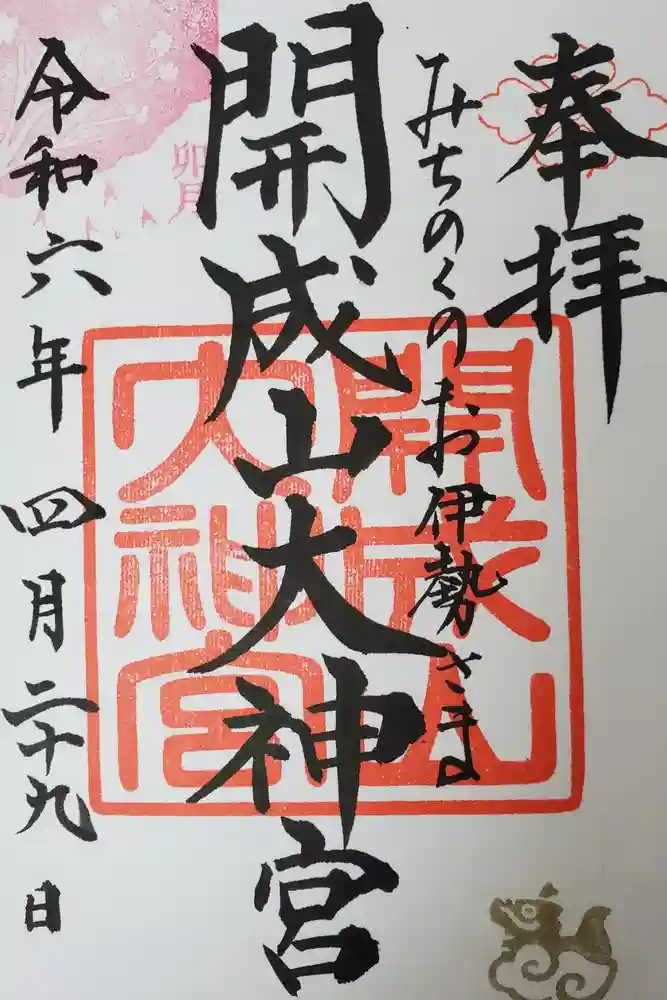 奉拝
みちのくのお伊勢さま
開成山大神宮
開成山
大神宮
卯月
令和六年 四月二十九日